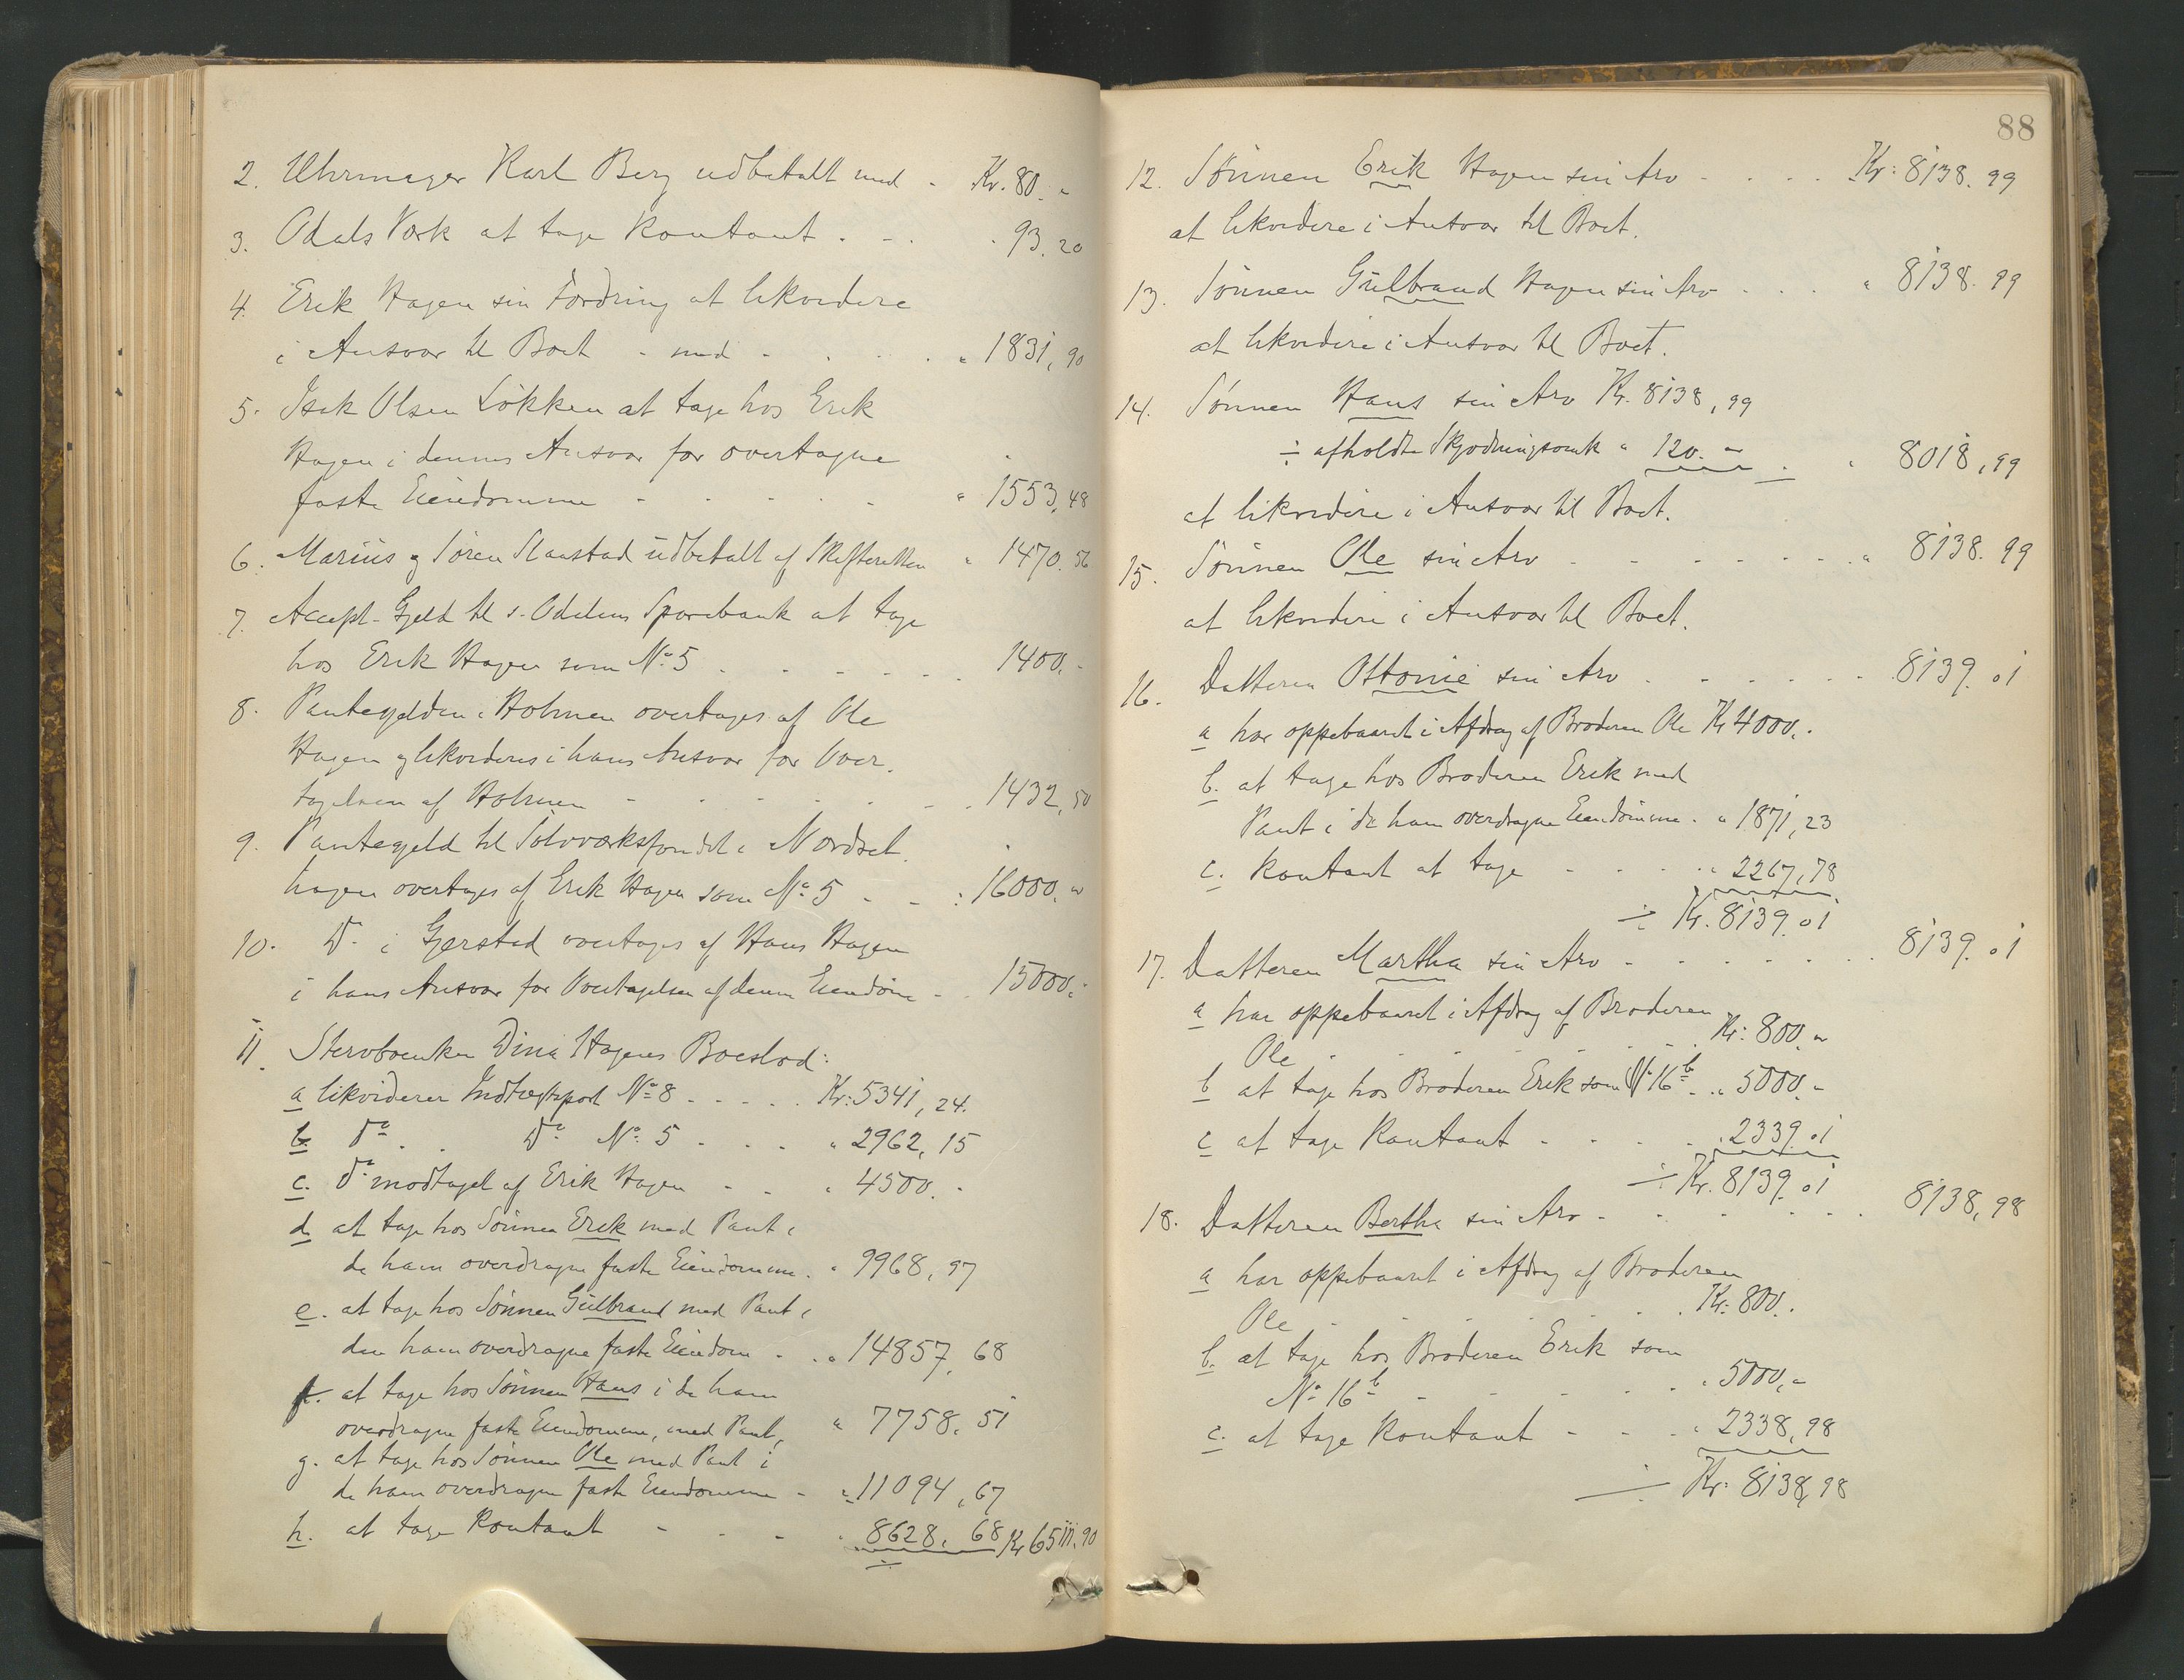 2. Uhrmager Karl Berg udbetalt med - Kr. 80. "
3. Odals Værk at tage kontant . - . . 93. 20
4. Erik Hagen sin Fordring at likvidere
i Ansvar til Boet - med - . . . " 1831, 90
5. Isak Olsen Løkken at tage hos Erik
Hagen i dennes Ansvar for overtagne
faste Eiendomme - - - - - " 1553, 48
6. Marius & Søren Slaastad udbetalt af Skifteretten " 1470. 56
7. Accept-Gjeld til s. Odalens Sparebank at tage
hos Erik Hagen som No 5 . . . . . . 1400. -
8. Pantegjelden i Holmen overtages af Ole
Hagen & likvideres i hans Ansvar for Over-
tagelsen af Holmen - - - - - - . 1432, 50
9. Pantegjeld til Sølvværksfondet i Nordset-
hagen overtages af Erik Hagen som No 5 . - : 16000. "
10. Do i Gjerstad overtages af Hans Hagen
i hans Ansvar for Overtagelsen af denne Eiendom - . 15000. -
11. Stervboenken Dina Hagens Boeslod:
a likviderer Indtægtspost No 8 - - - - . Kr: 5341, 24.
b do . . Do No 5 - - - . " 2962, 15
c. do modtaget af Erik Hagen - - " 4500. -
d at tage hos Sønnen Erik med Pant i
de ham overdragne faste Eiendomme. " 9968, 97
e. at tage hos Sønnen Gulbrand med Pant i
den ham overdragne faste Eiendom - . " 14857, 68
f. at tage hos Sønnen Hans i de ham
overdragne faste Eiendomme, med Pant, " 7758. 51
g. at tage hos Sønnen Ole med Pant i
de ham overdragne faste Eiendomme - " 11094, 67
h. at tage kontant - - - " 8628. 68 Kr 65111. 90
88
12. Sønnen Erik Hagen sin Arv - . . . Kr: 8138. 99
at likvidere i Ansvar til Boet.
13. Sønnen Gulbrand Hagen sin Arv . . . " 8138. 99
at likvidere i Ansvar til Boet.
14. Sønnen Hans sin Arv Kr. 8138, 99
÷ afholdte Skjødningsomk " 120. - . " 8018, 99
at likvidere i Ansvar til Boet.
15. Sønnen Ole sin Arv - - - - - - - " 8138. 99
at likvidere i Ansvar til Boet.
16. Datteren Ottonie sin Arv . - - - - - - 8139. 01
a har oppebaaret i Afdrag af Broderen Ole Kr 4000. -
b. at tage hos Broderen Erik med
Pant i de ham overdragne Eiendomme. " 1871, 23
c. kontant at tage - - - . " 2267, 78
÷ Kr. 8139. 01
17. Datteren Martha sin Arv - - - - - - . 8139. 01
a har oppebaaret i Afdrag af Broderen
Ole - - - - - . Kr: 800. "
b at tage hos Broderen Erik som No 16 b . " 5000. -
c at tage kontant - - - - . 2339. 01
÷ Kr. 8139. 01
18. Datteren Bertha sin Arv - - - - - - . 8138, 98
a har oppebaaret i Afdrag af Broderen
Ole - - - - . Kr: 800. .
b. at tage hos Broderen Erik som
No 16 b - - - - - " 5000, -
c. at tage kontant - - - " 2338, 98
÷ Kr: 8138, 98